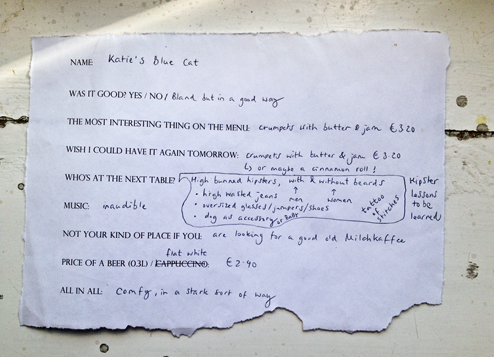 NAME: Katie's Blue Cat
WAS IT GOOD? YES / NO / Bland but in a good way
THE MOST INTERESTING THING ON THE MENU: crumpets with butter & jam €3.20
WISH I COULD HAVE IT AGAIN TOMORROW: crumpets with butter & jam €3.20
↳ or maybe a cinnamon roll!
WHO'S AT THE NEXT TABLE? High bunned hipsters, with & without beards
men women
• high waisted jeans
• oversized glasses/jumpers/shoes
• dog as accessory or baby
tattoo of stitches
Hipster
lessons
to be
learned
MUSIC: inaudible
NOT YOUR KIND OF PLACE IF YOU: are looking for a good old Milchkaffee
flat white
PRICE OF A BEER (0.3L) / CAPPUCCINO: €2.40
ALL IN ALL: Comfy, in a stark sort of way